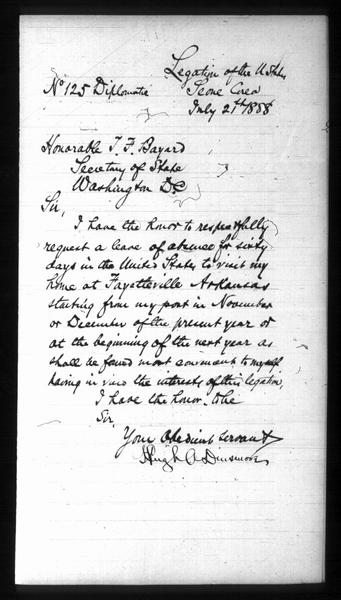 Legation of the U States
No 125 Diplomatic Seoul Corea
July 21st 1888
Honorable T. F. Bayard
Secretary of State
Washington DC
Sir,
I have the honor to respectfully
request a leave of absence for sixty
days in the United States to visit my
home at Fayetteville Arkansas
starting from my post in November
or December of the present year or
at the beginning of the next year as
shall be found most convenient to myself
having in view the interests of this legation,
I have the honor to be
Sir,
Your Obedient Servant
Hugh A Dinsmore